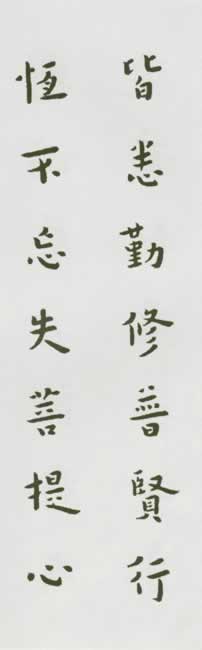 皆悉勤修普賢行
恆不忘失菩提心